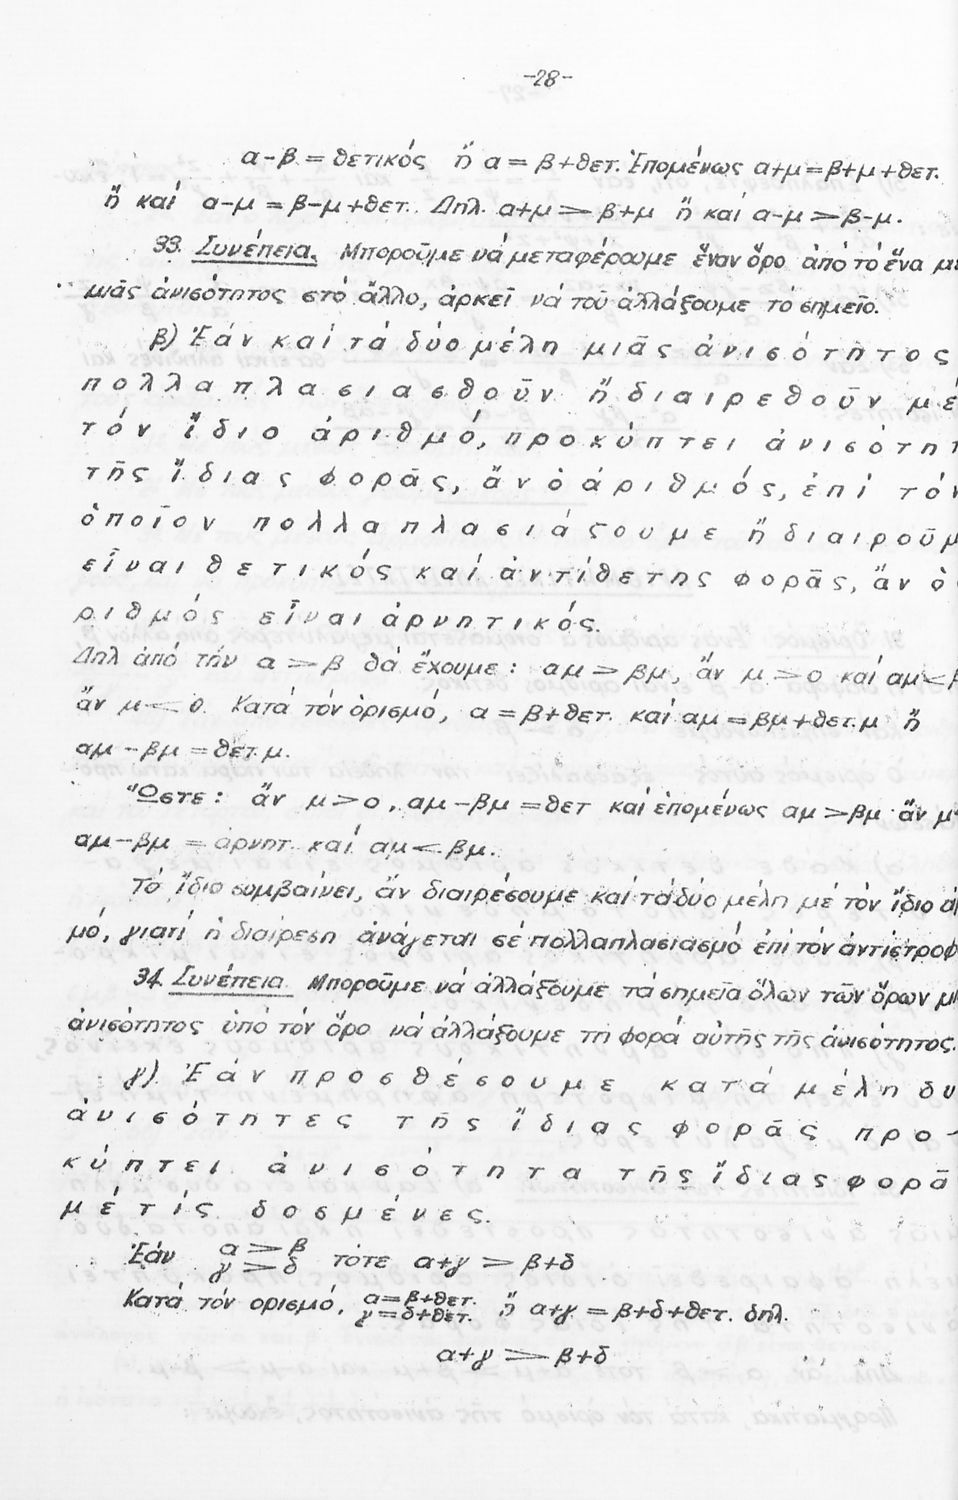 -28-
α-β = θετικός ἤ α = β+θετ. Ἐπομένως α+μ=β+μ+θετ.
ἤ καί α-μ = β-μ+θετ. Δηλ. α+μ > β+μ ἤ καί α-μ > β-μ.
33. Συνέπεια. Μποροῦμε νά μεταφέρουμε ἕναν ὅρο ἀπό τό ἕνα
μιᾶς ἀνισότητος στό ἄλλο, ἀρκεῖ νά τοῦ ἀλλάξουμε τό σημεῖο.
β) Ἐάν καί τά δύο μέλη μιᾶς ἀνισότητος
πολλαπλασιασθοῦν ἤ διαιρεθοῦν μέ
τόν ἴδιο ἀριθμό, προκύπτει ἀνισότητ
τῆς ἴδιας φορᾶς, ἄν ὁ ἀριθμός, ἐπί τόν
ὁποῖον πολλαπλασιάζουμε ἤ διαιροῦμ
εἶναι θετικός καί ἀντίθετης φορᾶς, ἄν ὁ
ριθμός εἶναι ἀρνητικός.
Δηλ ἀπό τήν α > β θά ἔχουμε: αμ > βμ, ἄν μ > 0 καί αμ <
ἄν μ < 0. Κατά τόν ὁρισμό, α = β+θετ. καί αμ = βμ+θετ.μ ἤ
αμ - βμ = θετ.μ.
Ὥστε: ἄν μ > 0, αμ - βμ = θετ καί ἐπομένως αμ > βμ ἄν μ
αμ - βμ = ἀρνητ. καί αμ < βμ.
Τό ἴδιο συμβαίνει, ἄν διαιρέσουμε καί τά δύο μέλη μέ τόν ἴδιο
μό, γιατί ἡ διαίρεση ἀνάγεται σέ πολλαπλασιασμό ἐπί τόν ἀντίστροφ
34. Συνέπεια. Μποροῦμε νά ἀλλάξουμε τά σημεῖα ὅλων τῶν ὅρων
ἀνισότητος ὑπό τόν ὅρο νά ἀλλάξουμε τή φορά αὐτῆς τῆς ἀνισότητος.
γ) Ἐάν προσθέσουμε κατά μέλη δυ
ἀνισότητες τῆς ἴδιας φορᾶς προ-
κύπτει ἀνισότητα τῆς ἴδιας φορᾶ
μέ τίς δοσμένες.
Ἐάν α > β γ > δ τότε α+γ > β+δ
Κατά τόν ορισμό, α=β+θετ. γ=δ+θετ. ἤ α+γ = β+δ+θετ. δηλ.
α+γ > β+δ